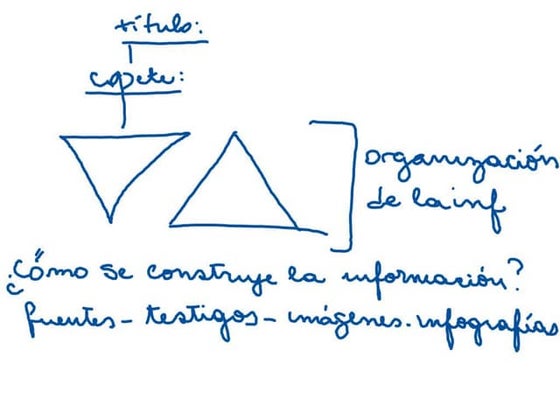 título:
copete:
organización
de la inf
¿Cómo se construye la información?
fuentes - testigos - imágenes. infografías